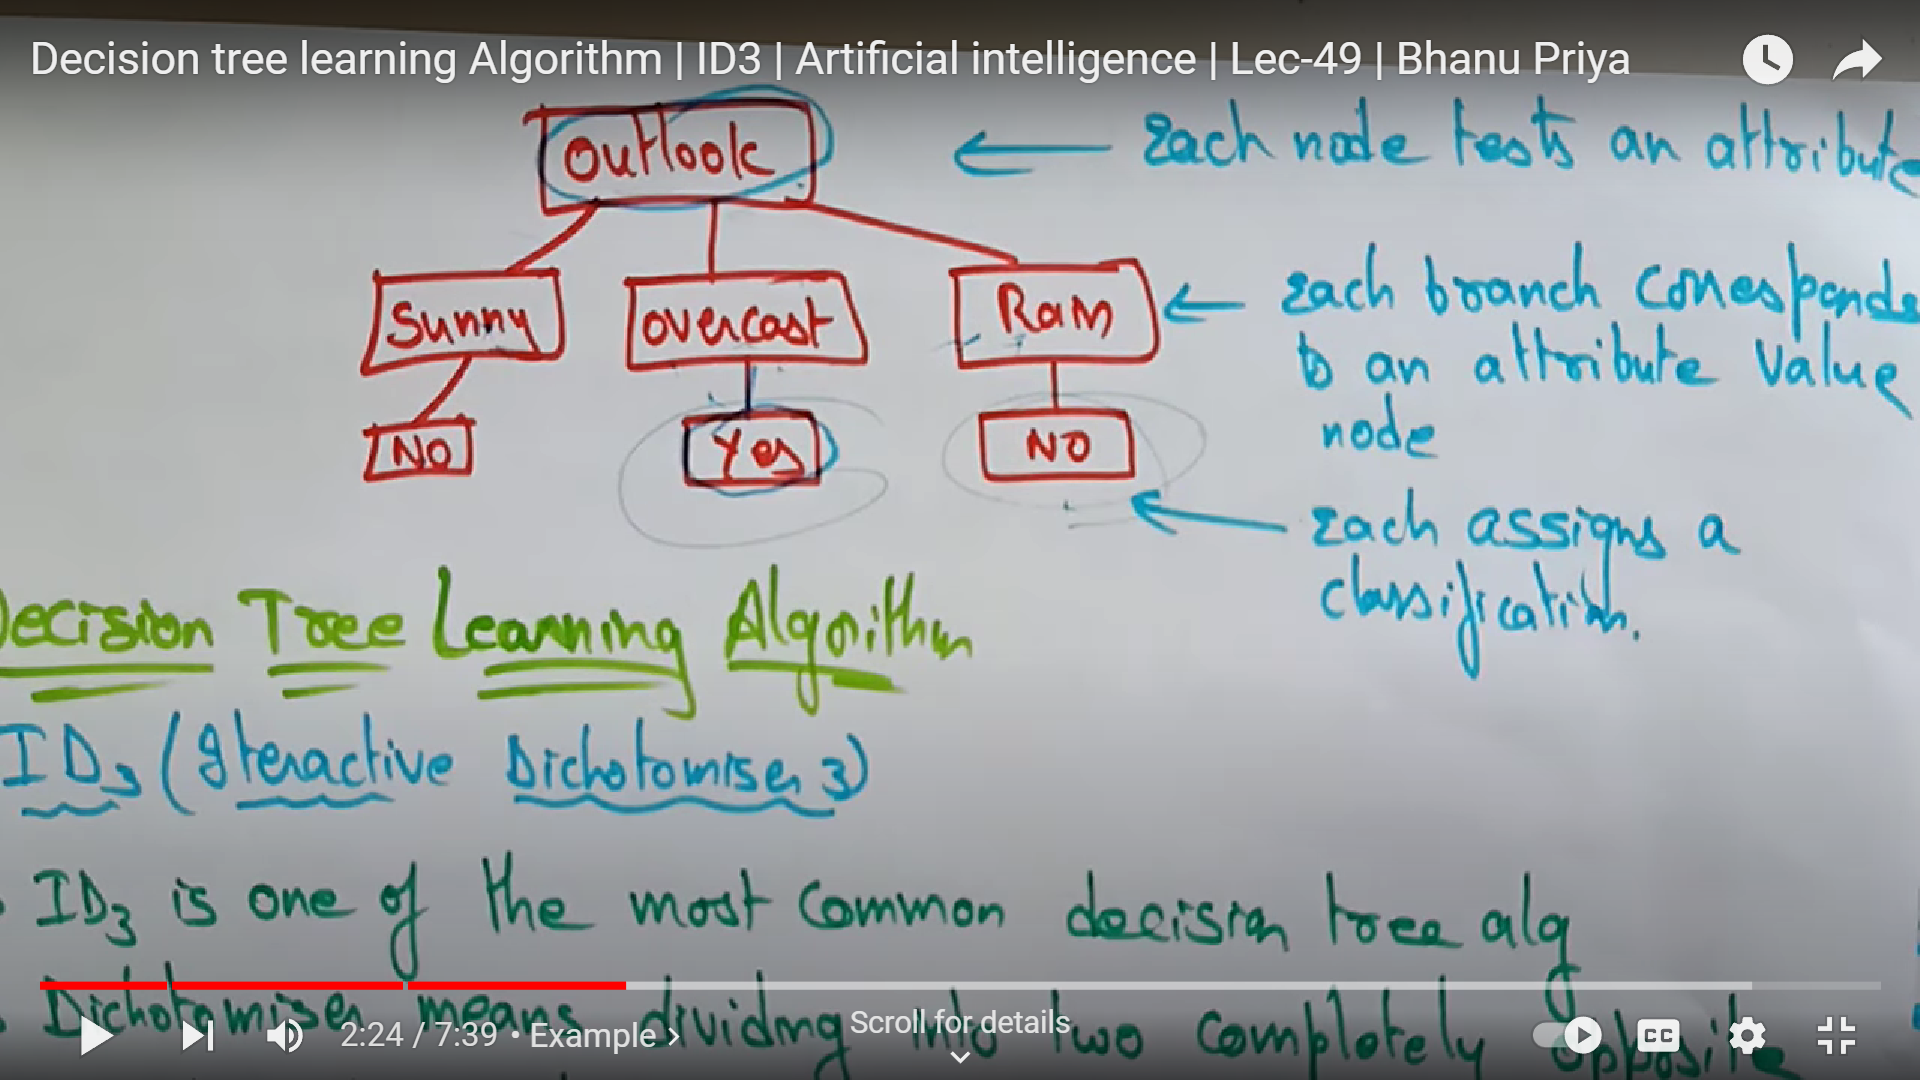 Decision tree learning Algorithm | ID3 | Artificial intelligence | Lec-49 | Bhanu Priya
Outlook
← Each node tests an attribute
Sunny
overcast
Rain
← Each branch corresponds
to an attribute value
node
No
Yes
NO
Each assigns a
classification.
Decision Tree Learning Algorithm
ID3 (Iteractive Dichotomiser 3)
ID3 is one of the most common decision tree alg
Dichotomiser means dividing into two completely opposite
2:24 / 7:39 • Example >
Scroll for details
CC